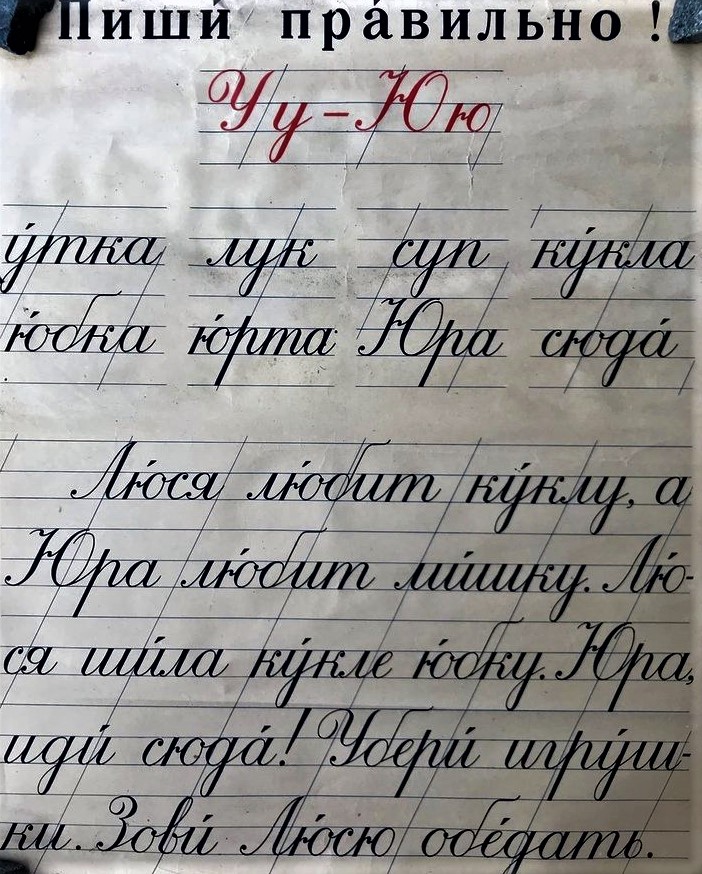 Пиши́ пра́вильно!
Уу – Юю
у́тка лук суп ку́кла
ю́бка ю́рта Юра сюда́
Лю́ся лю́бит ку́клу, а
Юра лю́бит ми́шку. Лю́-
ся ши́ла ку́кле ю́бку. Юра,
иди́ сюда́! Убери́ игру́ш-
ки. Зови́ Лю́сю обе́дать.